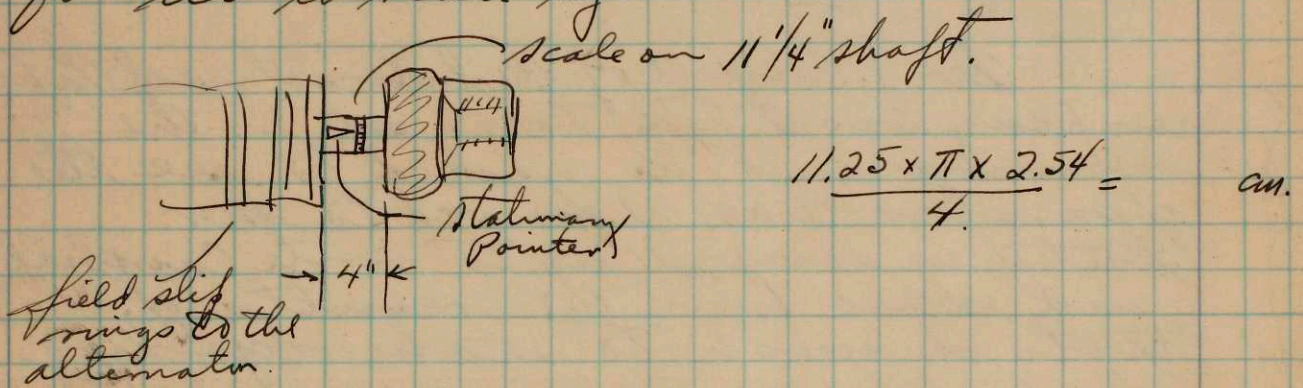 scale on 11 1/4" shaft.
11.25 x π x 2.54 = cm.
4.
stationary
Pointer
4"
field slip
rings to the
alternator.